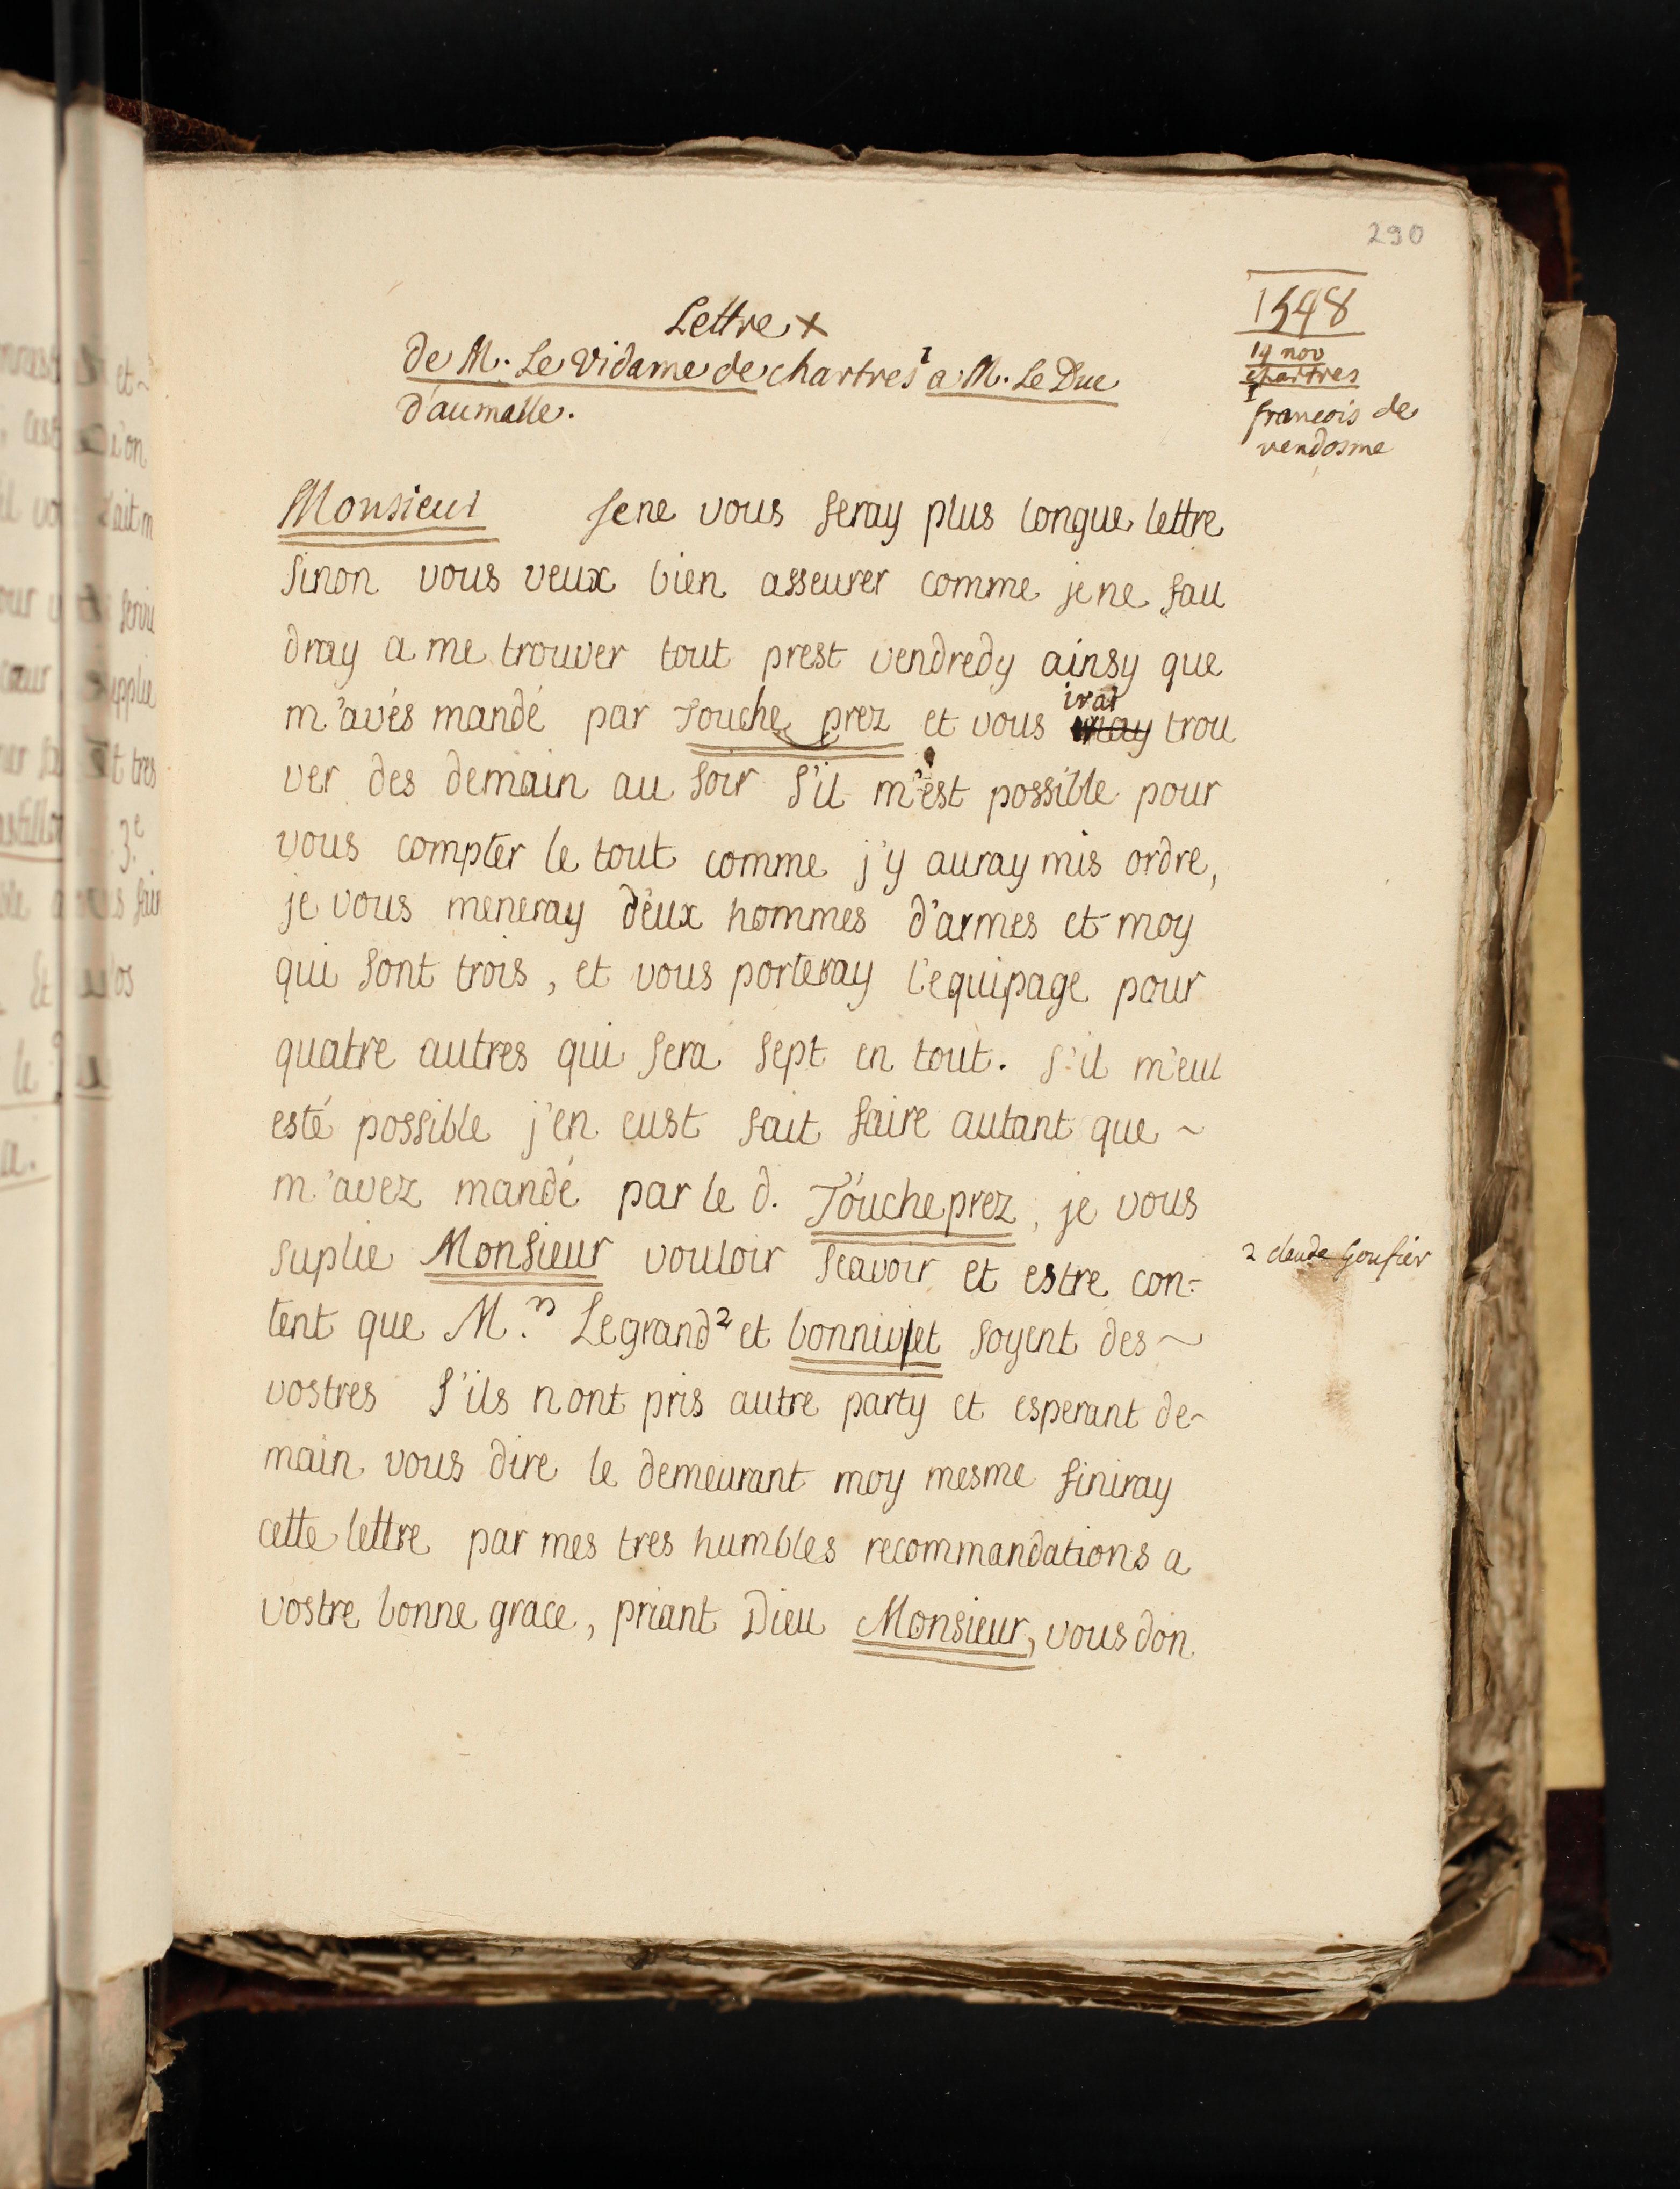 290
1548
19 nov
chartres
1
francois de
vendosme
Lettre x
de M. Le Vidame de chartres 1 a M. Le Duc
d'aumalle.
Monsieur Je ne vous feray plus longue lettre
sinon vous veux bien asseurer comme je ne fau
dray a me trouver tout prest vendredy ainsy que
m'avés mandé par Touche prez et vous irai trou
ver des demain au soir s'il m'est possible pour
vous compter le tout comme j'y auray mis ordre,
je vous meneray deux hommes d'armes et moy
qui sont trois, et vous porteray l'equipage pour
quatre autres qui sera sept en tout. s'il m'eut
esté possible j'en eust fait faire autant que ~
m'avez mandé par le d. Toucheprez, je vous
suplie Monsieur vouloir scavoir et estre con=
tent que M.rs Legrand 2 et bonnivet soyent des ~
vostres s'ils n ont pris autre party et esperant de-
main vous dire le demeurant moy mesme finiray
cette lettre par mes tres humbles recommandations a
vostre bonne grace, priant Dieu Monsieur, vous don
2 claude Goufier